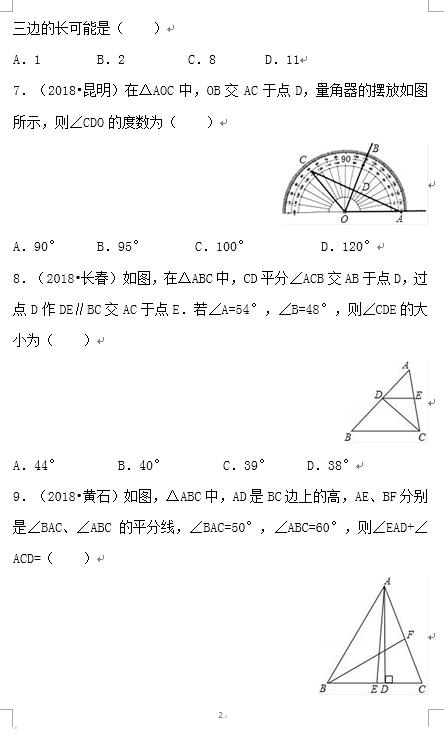 三边的长可能是（　　）
A．1　B．2　C．8　D．11
7．（2018•昆明）在△AOC中，OB交AC于点D，量角器的摆放如图
所示，则∠CDO的度数为（　　）
B
C
90
D
O
A
A．90°　B．95°　C．100°　D．120°
8．（2018•长春）如图，在△ABC中，CD平分∠ACB交AB于点D，过
点D作DE∥BC交AC于点E．若∠A=54°，∠B=48°，则∠CDE的大
小为（　　）
A
D
E
B
C
A．44°　B．40°　C．39°　D．38°
9．（2018•黄石）如图，△ABC中，AD是BC边上的高，AE、BF分别
是∠BAC、∠ABC的平分线，∠BAC=50°，∠ABC=60°，则∠EAD+∠
ACD=（　　）
A
F
B
E D
C
2